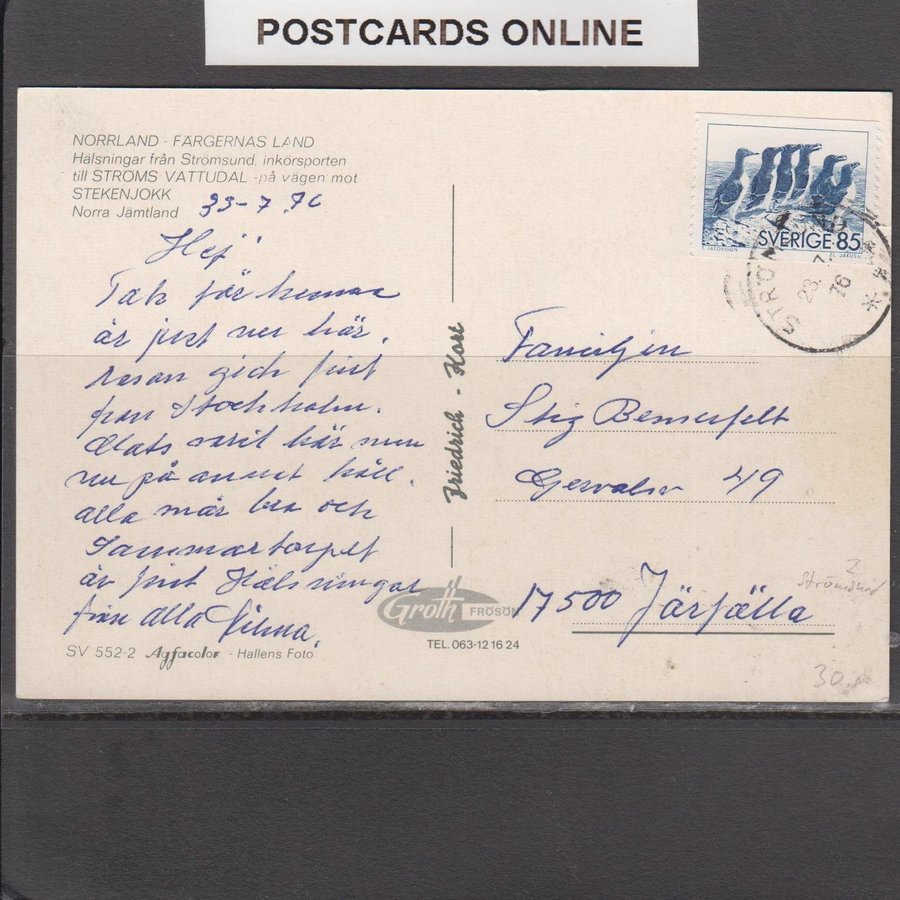 POSTCARDS ONLINE
NORRLAND - FÄRGERNAS LAND
Hälsningar från Strömsund, inkörsporten
till STRÖMS VATTUDAL - på vägen mot
STEKENJOKK
Norra Jämtland
Hej!
Tak för
är just nu här.
Resan gich fint
från Stockholm.
Mats varit här men
nu på annat håll.
alla mår bra och
är fint Hälsningar
från alla
SV 552-2 Agfacolor - Hallens Foto
Friedrich - Kort
Groth
FRÖSÖN
TEL. 063-12 16 24
SVERIGE 85
23 7 76
Familjen
Stig
49
17500 Järfälla
30